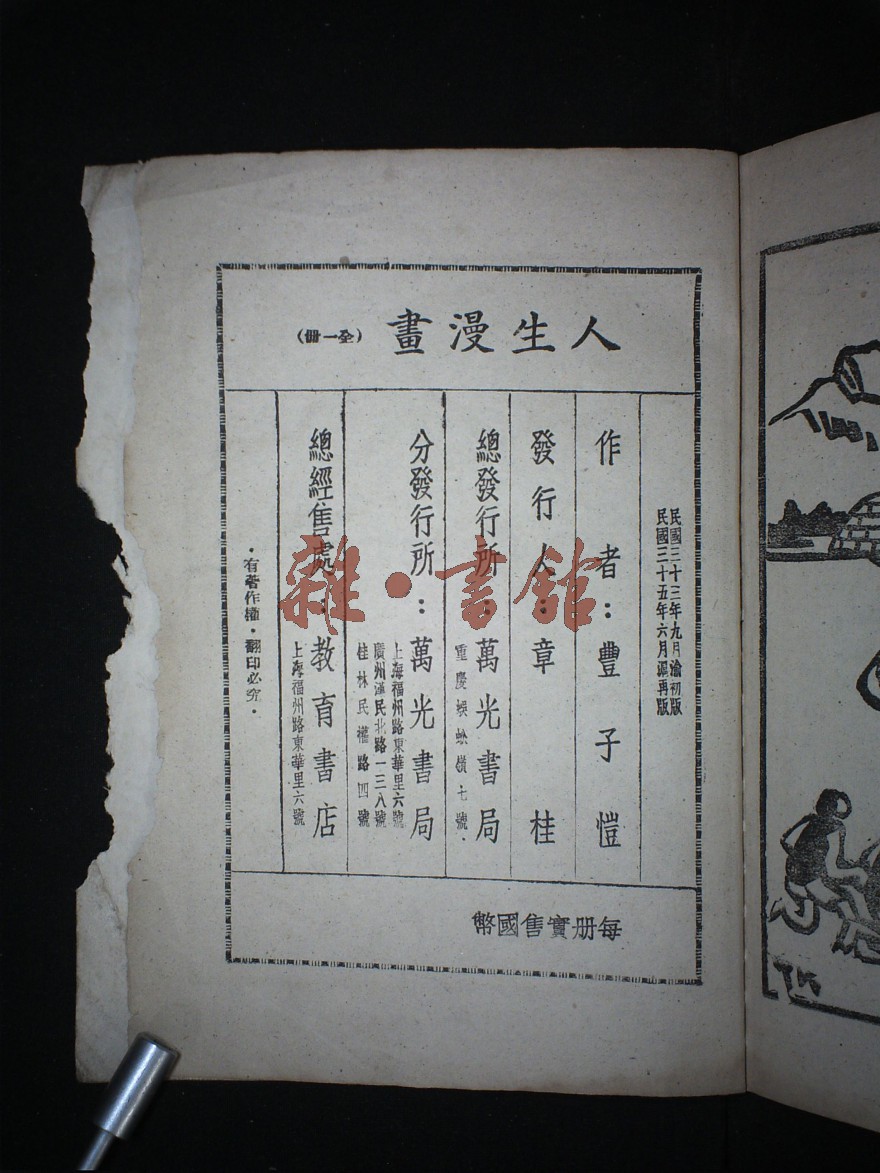 人生漫畫（全一冊）
民國三十三年九月渝初版
民國三十五年六月滬再版
作者：豐子愷
發行人：章桂
總發行所：萬光書局
重慶蜈蚣嶺七號
分發行所：萬光書局
上海福州路東華里六號
廣州漢民北路一三八號
桂林民權路四號
總經售處：教育書店
上海福州路東華里六號
·有著作權·翻印必究·
每册實售國幣
雜·書館